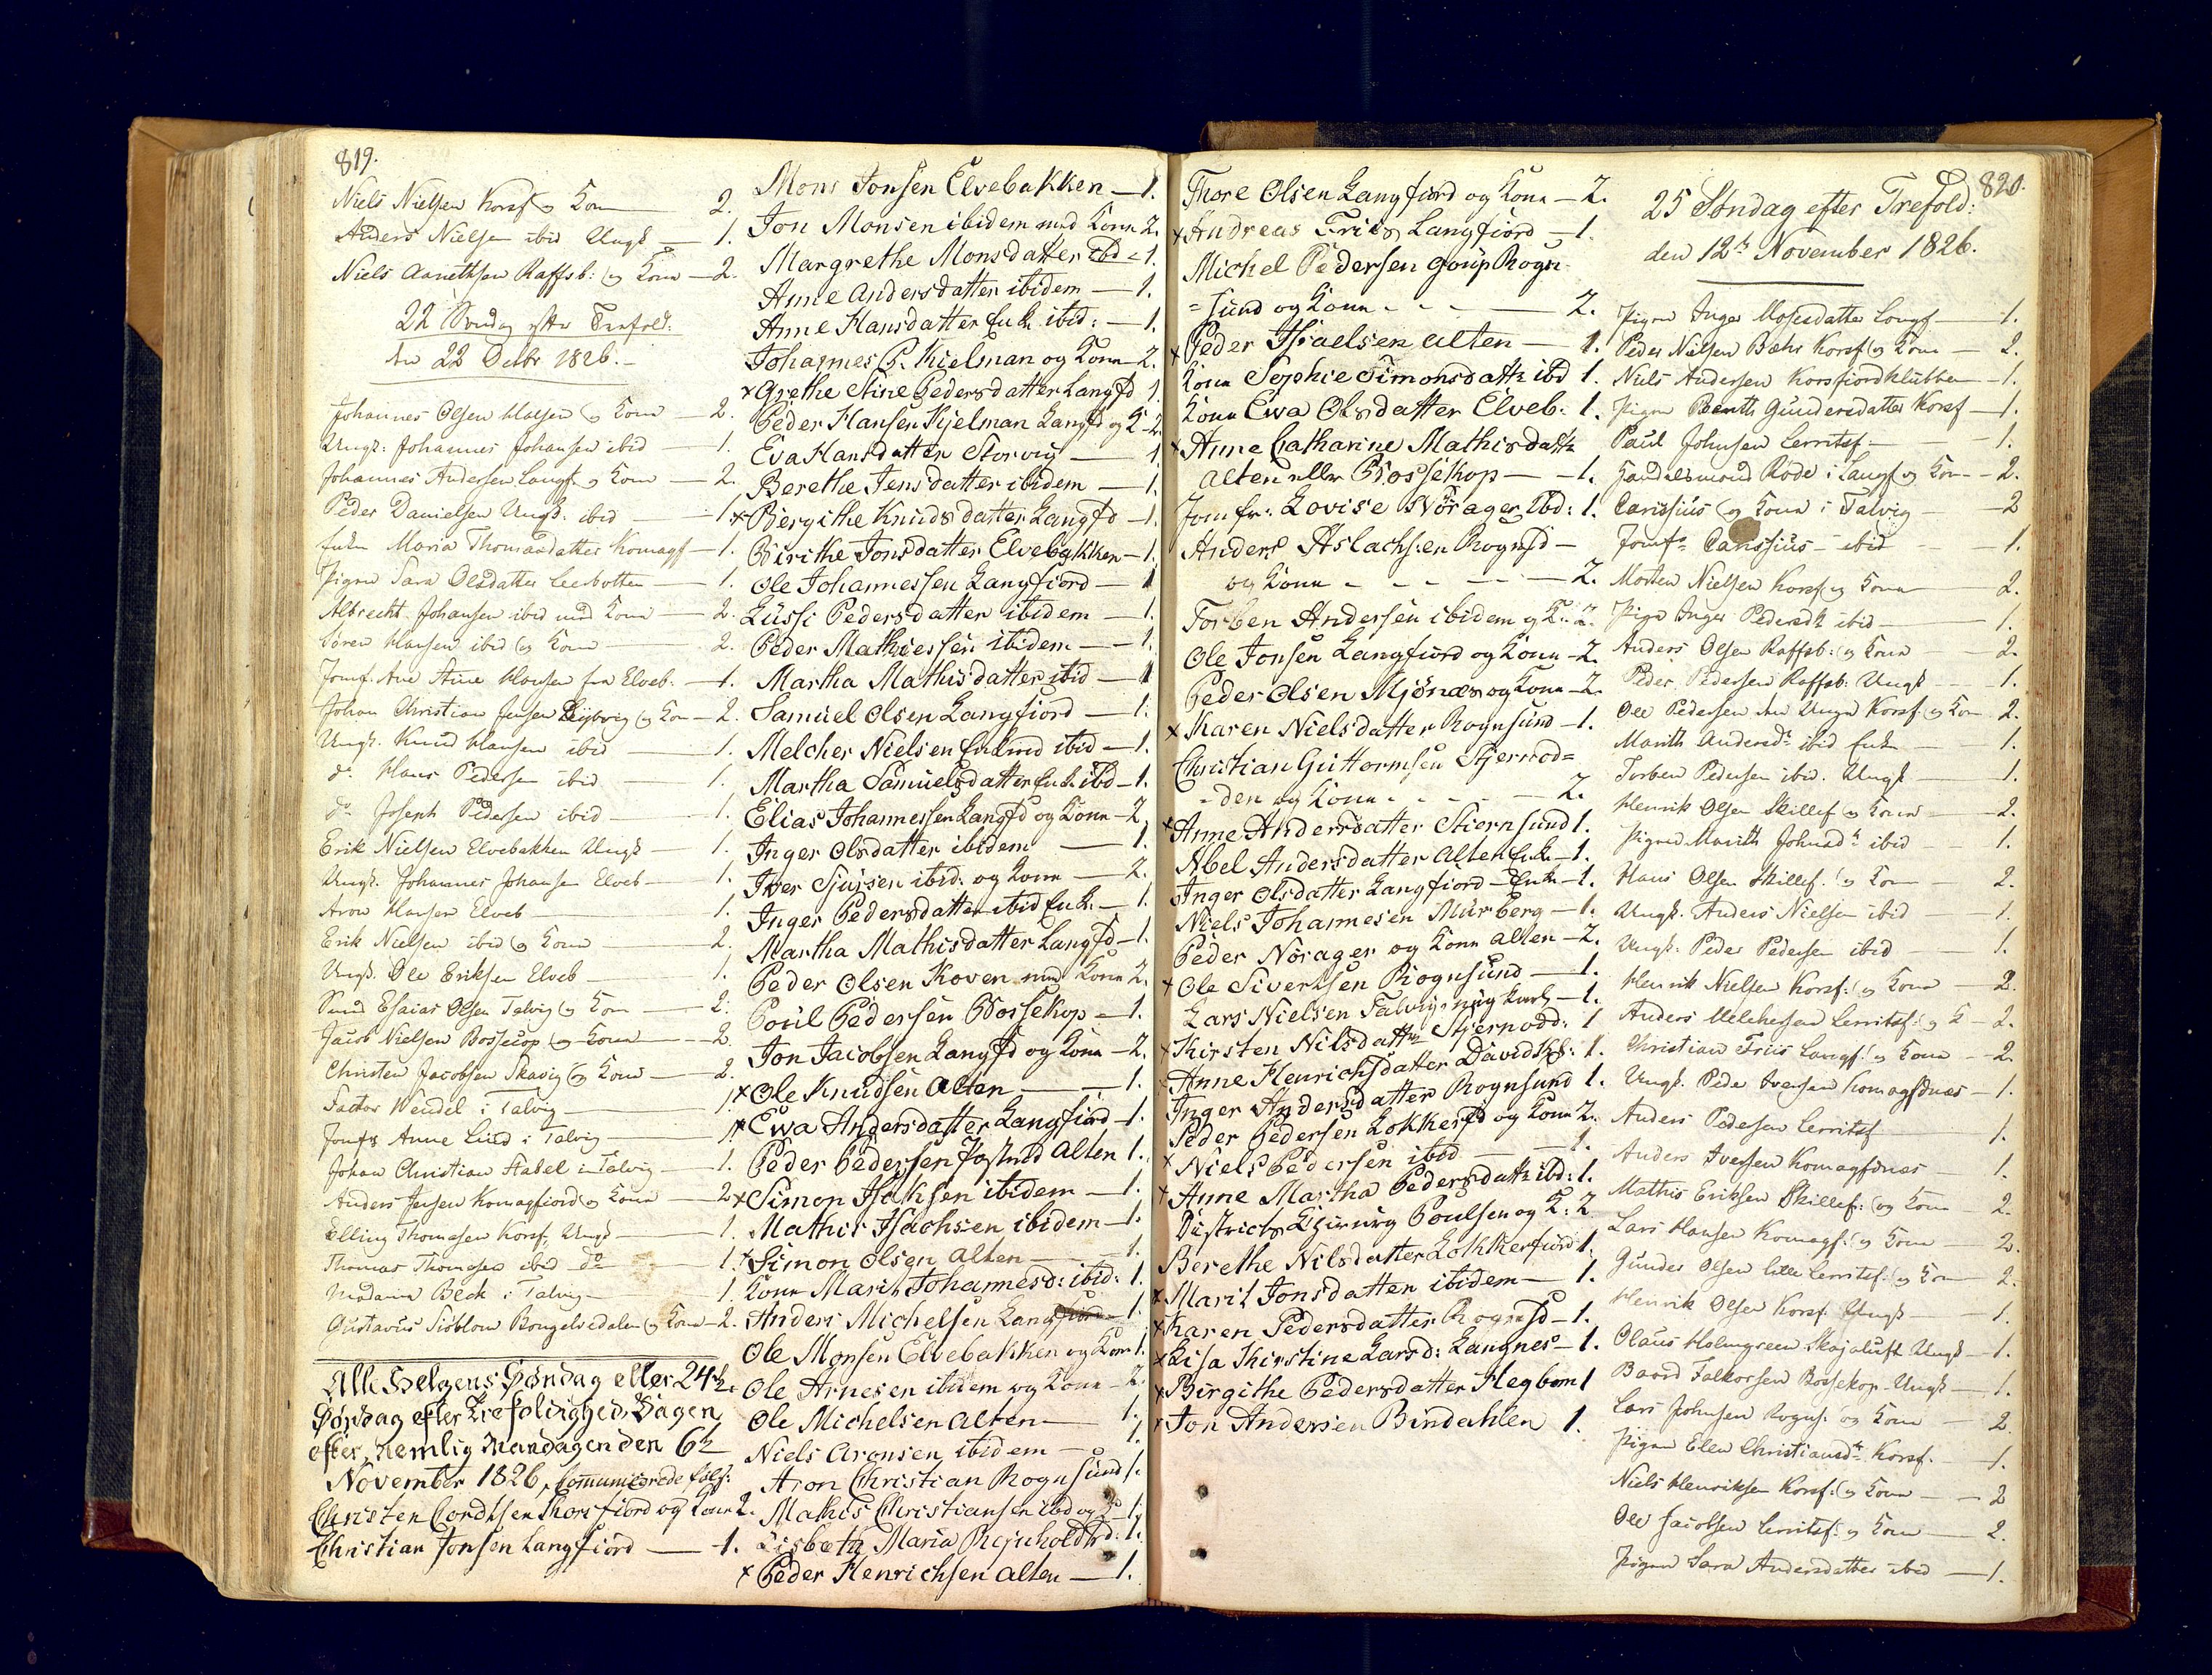 819.
Niels Nielsen Korsf og Kone 2.
Anders Nielsen ibid Ungk 1.
Niels Anethsen Raffsb: og Kone 2.
22 Søndag efter Trefold:
den 22 Octbr 1826.
Johannes Olsen og Kone 2.
Ungk: Johannes Johansen ibid 1.
Johannes Andersen Langf. og Kone 2.
Peder Danielsen Ungk. ibid 1.
Enken Maria Thomasdatter Komagf 1.
Pigen Sara Olsdatter Leerbotten 1.
Albrecht Johansen ibid med Kone 2.
Sören Hansen ibid og Kone 2.
Jomf. Ane Stine Hansen fra Elveb. 1.
Johan Christian Jensen og Kone 2.
Ungk. Knud Hansen ibid 1.
do Hans Pedersen ibid 1.
do Joseph Pedersen ibid 1.
Erik Nielsen Elvebakken Ungk 1.
Ungk. Johannes Johansen Elveb 1.
Aron Hansen Elveb 1.
Erik Nielsen ibid og Kone 2.
Ungk. Ole Eriksen Elveb 1.
Esaias Olsen Talvig og Kone 2.
Jacob Nielsen Bossecop og Kone 2.
Christen Jacobsen Skavig og Kone 2.
Factor Wendel i Talvig 1.
Jomfr Anne Lund i Talvig 1.
Johan Christian Stabel i Talvig 1.
Anders Jensen Komagfiord og Kone 2
Elling Thomesen Korsf. Ungk 1.
Thomas Thomesen ibid do 1.
Madame Beck i Talvig 1.
Gustavus Siöblom Bongelvedalen og Kone 2.
Alle Helgens Søndag eller 24de
Søndag efter Trefoldighed, Dagen
efter, nemlig Mandagen den 6te
November 1826, Communicerede følg:
Christen Cordtsen Thorsfiord og Kone 2.
Christian Jonsen Langfiord 1.
Mons Jonsen Elvebakken 1.
Jon Monsen ibidem med Kone 2.
Margrethe Monsdatter ibd 1.
Anne Andersdatter ibidem 1.
Anne Hansdatter Enke ibid: 1.
Johannes P. Kielman og Kone 2.
x Grethe Stine Pedersdatter Langfd 1
Peder Hansen Kjelman Langfd og K 2.
Eva Hansdatter Storvig 1
Berethe Jensdatter ibidem 1.
x Bergithe Knudsdatter Langfd 1.
Birithe Jonsdatter Elvebakken 1.
Ole Johannessen Langfiord 1
Lussi Pedersdatter ibidem 1.
Peder Mathiessen ibidem 1.
Martha Mathisdatter ibid 1
Samuel Olsen Langfiord 1.
Melcher Nielsen Enkmd ibid 1.
Martha Samuelsdatter Enke ibd 1.
Elias Johannessen Langfd og Kone 2
Inger Olsdatter ibidem 1.
Iver Sjursen ibid: og Kone 2.
Inger Pedersdatter ibid Enke. 1.
Martha Mathisdatter Langfd 1.
Peder Olsen Koven med Kone 2.
Poul Pedersen Bossekop 1.
Jon Jacobsen Langfd og Kone 2.
x Ole Knudsen Alten 1.
x Ewa Andersdatter Langfiord 1.
Peder Pedersen Alten 1.
x Simon Isaksen ibidem 1.
Mathis Isachsen ibidem 1.
x Simon Olsen Alten 1.
Kone Marit Johannesd: ibid: 1.
Anders Michelsen Langfiord 1.
Ole Monsen Elvebakken og Kone 1.
Ole Arnesen ibidem og Kone 2.
Ole Michelsen Alten 1.
Niels Aronsen ibidem 1.
Aron Christian Rognsund 1.
Mathis Christiansen ibd og 1.
Lisbeth Maria 1.
x Peder Henrichsen Alten 1.
820.
Thore Olsen Langfiord og Kone 2.
x Andreas Friis Langfiord 1.
Michel Pedersen Rogn
=sund og Kone 2.
x Peder Israelsen Alten 1.
Kone Sophie Simonsdattr ibd 1.
Kone Ewa Olsdatter Elveb: 1.
x Anne Catharine Mathisdattr
Alten eller Bossekop 1.
Jomfr: Lovise Nörager ibd: 1.
Anders Aslachsen Rognsd
og Kone 2.
Torben Andersen ibidem og K. 2.
Ole Jonsen Langfiord og Kone 2.
Peder Olsen Mjönæs og Kone 2.
x Karen Nielsdatter Rognsund 1.
Christian Guttormsen Stjernod=
=den og Kone 2.
x Anne Andersdatter Stiernsund 1.
Abel Andersdatter Alten Enke 1.
Inger Olsdatter Langfiord Enke 1.
Niels Johannesen Murberg 1.
Peder Nörager og Kone Alten 2.
x Ole Sivertsen Rognsund 1.
Lars Nielsen Talvig ungkarl 1.
x Kirsten Nilsdattr Stjernodd: 1
x Anne Henrichsdatter Davids: 1.
Inger Andersdatter Rognsund 1.
Peder Pedersen Lokkerfd og Kone 2.
x Niels Pedersen ibid 1.
x Anne Martha Pedersdattr ibd: 1.
Districts Chirurg Poulsen og K: 2
Berethe Nilsdatter Lokkerfiord 1.
x Marit Jonsdatter ibidem 1.
x Karen Pedersdatter Rognsd 1.
x Lisa Kirstine Larsd: Langnes 1.
x Birgithe Pedersdatter Hegbom 1
x Jon Andersen Bindahlen 1.
25 Søndag efter Trefold:
den 12te November 1826.
Pigen Inger Mosesdatter Langf 1.
Peder Nielsen Bæhr Korsf og Kone 2.
Niels Andersen Korsfiordklubben 1.
Pigen Berith Gundersdatter Korsf 1.
Paul Johnsen Lerritsf. 1.
Handelsmand Rode i Langf og Kone 2.
Carissius og Kone i Talvig 2
Jomfr Carissius ibid 1.
Morten Nielsen Korsf og Kone 2.
Pige Inger Pedersdr ibid 1.
Anders Olsen Raffsb: og Kone 2.
Peder Pedersen Raffsb: Ungk 1.
Ole Pedersen den Unge Korsf. og Kone 2.
Marith Andersdr ibid Enke 1.
Torben Pedersen ibid. Ungk 1.
Henrik Olsen Skillef og Kone 2.
Pigen Marith Johnsdr ibid 1.
Hans Olsen Skillef. og Kone 2.
Ungk. Anders Nielsen ibid 1.
Ungk: Peder Pedersen ibid 1.
Henrik Nielsen Korsf: og Kone 2.
Anders Melchersen Lerritsf: og K 2.
Christian Friis Langf: og Kone 2.
Ungk. Peder Iversen Komagfdnæs 1.
Anders Pedersen Lerritsf 1.
Anders Iversen Komagfdnæs 1.
Mathis Eriksen Skillef: og Kone 2.
Lars Hansen Komagf: og Kone 2.
Gunder Olsen lille Lerritsf: og Kone 2.
Henrik Olsen Korsf. Ungk 1.
Olaus Holmgreen Skajaluft Ungk 1.
Baard Falkorsen Bossekop Ungk 1.
Lars Johnsen Rogns. og Kone 2.
Pigen Elen Christiansdr Korsf. 1.
Niels Henriksen Korsf: og Kone 2
Ole Jacobsen Lerritsf: og Kone 2.
Pigen Sara Andersdatter ibid 1.